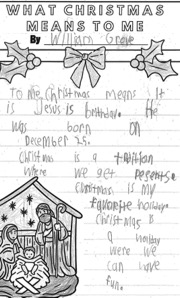 WHAT CHRISTMAS
MEANS TO ME
By William Grove
To me Christmas means It
is Jesus is birthday. He
was born on
December 25.
Christmas is a
Where we get Presents.
Christmas is my
favorite holiday.
Christmas is
a holiday
were we
can have
fun.